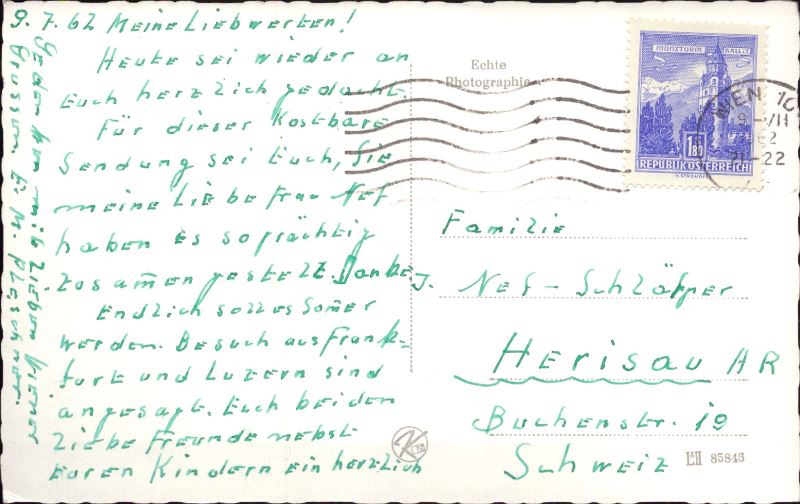 9. 7. 62 Meine Liebwerten!
Heute sei wieder an
Euch herzlich gedacht.
Für dieser Kostbare
Sendung sei Euch, Sie
meine Liebe Frau Nef
haben es so prächtig
zusam̄en gestellt. Danke
Endlich soll es Som̄er
werden. Besuch aus Frank-
furt und Luzern sind
angesagt. Euch beiden
liebe Freunde nebst
Euren Kindern ein herzlich
Gedenken mit lieben Wiener
Grüssen E. M. Pleschner.
Echte
Photographie
MÜNZTURM HALL i. T.
1.80
REPUBLIK ÖSTERREICH
WIEN 10
9.-VII
62
21-22
Familie
Nef - Schläpfer
Herisau AR
Buchenstr. 19
Schweiz
K
L II 85846